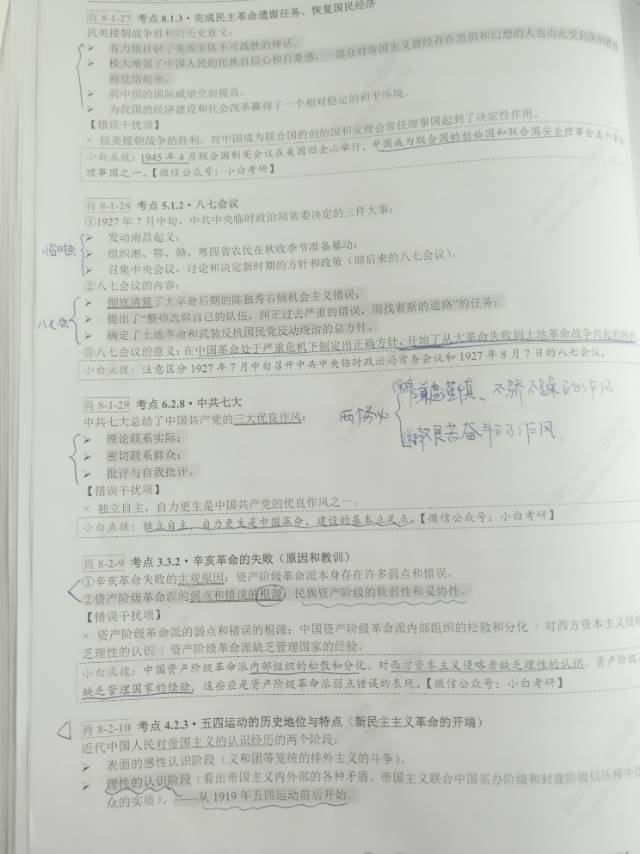 肖 8-1-27 考点 8.1.3·完成民主革命遗留任务、恢复国民经济
抗美援朝战争胜利的历史意义：
➢ 有力地打破了美国军队不可战胜的神话。
➢ 极大增强了中国人民的民族自信心和自豪感，一部分对帝国主义曾经存在恐惧和幻想的人也由此受到深刻教育
而觉悟起来。
➢ 新中国的国际威望空前提高。
➢ 为我国的经济建设和社会改革赢得了一个相对稳定的和平环境。
【错误干扰项】
× 抗美援朝战争的胜利，对中国成为联合国的创始国和安理会常任理事国起到了决定性作用。
小白点拨：1945 年 4 月联合国制宪会议在美国旧金山举行，中国成为联合国的创始国和联合国安全理事会五个常任
理事国之一。【微信公众号：小白考研】
肖 8-1-28 考点 5.1.2·八七会议
①1927 年 7 月中旬，中共中央临时政治局常委决定的三件大事：
➢ 发动南昌起义；
➢ 组织湘、鄂、赣、粤四省农民在秋收季节准备暴动；
➢ 召集中央会议，讨论和决定新时期的方针和政策（即后来的八七会议）。
②八七会议的内容：
➢ 彻底清算了大革命后期的陈独秀右倾机会主义错误；
➢ 提出了“整顿改编自己的队伍，纠正过去严重的错误，而找着新的道路”的任务；
八七会
➢ 确定了土地革命和武装反抗国民党反动统治的总方针。
③八七会议的意义：在中国革命处于严重危机下制定出正确方针，开始了从大革命失败到土地革命战争兴起的转折
小白点拨：注意区分 1927 年 7 月中旬召开中共中央临时政治局常务会议和 1927 年 8 月 7 日的八七会议。
肖 8-1-29 考点 6.2.8·中共七大
中共七大总结了中国共产党的三大优良作风：
➢ 理论联系实际；
➢ 密切联系群众；
➢ 批评与自我批评。
两个务必
谦虚谨慎、不骄不躁的作风
艰苦奋斗的作风、
【错误干扰项】
× 独立自主，自力更生是中国共产党的优良作风之一。
小白点拨：独立自主，自力更生是中国革命、建设的基本立足点。【微信公众号：小白考研】
肖 8-2-9 考点 3.3.2·辛亥革命的失败（原因和教训）
①辛亥革命失败的主观原因：资产阶级革命派本身存在许多弱点和错误。
②资产阶级革命派的弱点和错误的根源：民族资产阶级的软弱性和妥协性。
【错误干扰项】
× 资产阶级革命派的弱点和错误的根源：中国资产阶级革命派内部组织的松散和分化 / 对西方资本主义侵略
乏理性的认识 / 资产阶级革命派缺乏管理国家的经验。
小白点拨：中国资产阶级革命派内部组织的松散和分化、对西方资本主义侵略者缺乏理性的认识、资产阶级
缺乏管理国家的经验，这些应是资产阶级革命派弱点错误的表现。【微信公众号：小白考研】
肖 8-2-10 考点 4.2.3·五四运动的历史地位与特点（新民主主义革命的开端）
近代中国人民对帝国主义的认识经历的两个阶段：
➢ 表面的感性认识阶段（义和团等笼统的排外主义的斗争）。
➢ 理性的认识阶段（看出帝国主义内外部的各种矛盾、帝国主义联合中国买办阶级和封建阶级以压榨中国
众的实质）。——从 1919 年五四运动前后开始。